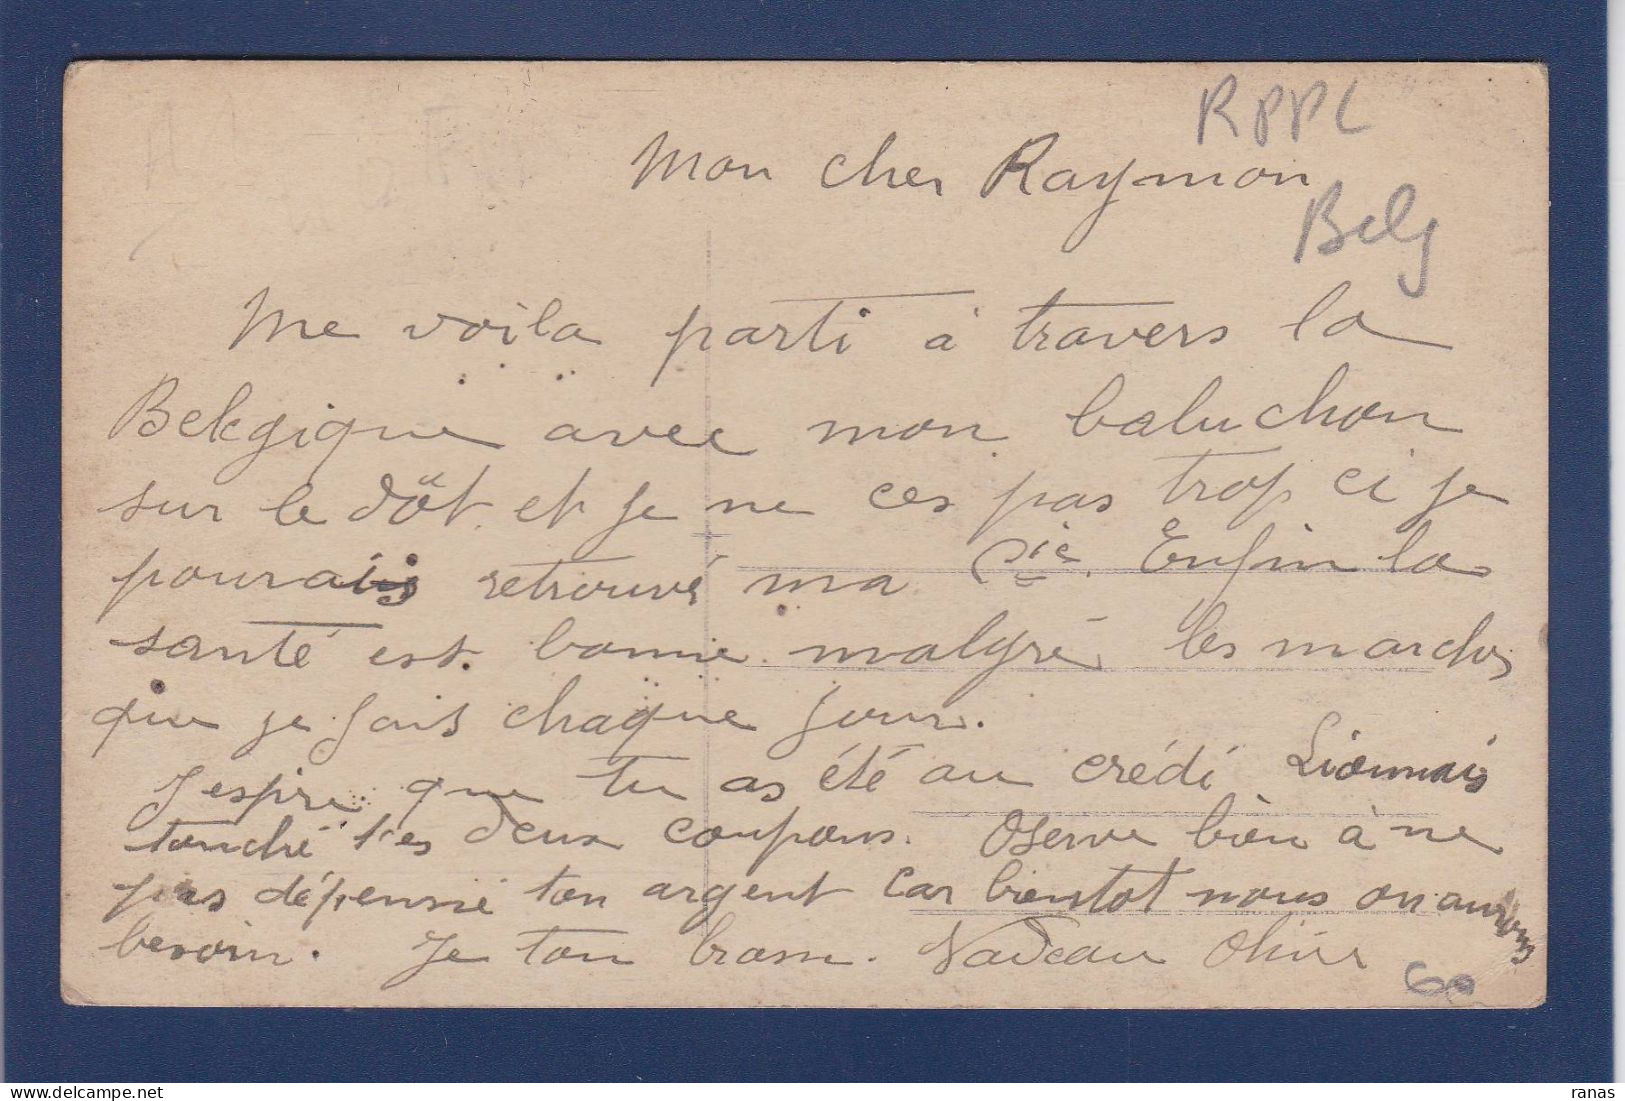 RPPC
Mon cher Raymon
Belg
Me voila parti à travers la
Belgique avec mon baluchon
sur le dôt et je ne ces pas trop ci je
pourais retrouvé ma Cie. Enfin la
santé est bonne malgré les marches
que je fais chaque jour.
J espire que tu as été au crédi Lionnais
touché tes deux coupons. Oserve bien à ne
pas dépensé ton argent car bientot nous on aurons
besoin. Je ton brasse. Nadeau Olive
60
ranas